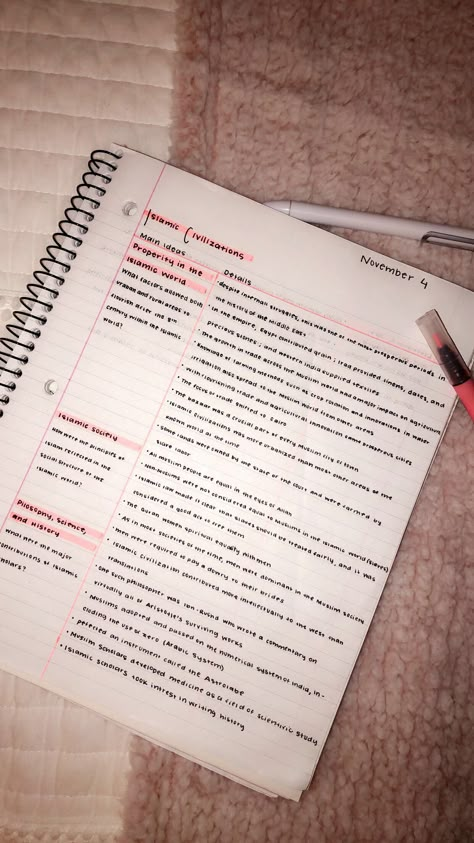 Islamic Civilizations
November 4
Main ideas
Details
Properity in the
Islamic World
What factors allowed both
urban and rural areas to
florish after the 8th
century within the Islamic
world?
Islamic society
How were the principles of
Islam reflected in the
social structure of the
Islamic world?
Philosophy, Science,
and History
What were the major
contributions of Islamic
scholars?
• despite internal struggles, this was one of the most prosperous periods in
the history of the Middle East
• In the empire, Egypt contributed grain; Iraq provided linens, dates, and
precious stones; and western India supplied textiles
• The growth in trade across the Muslim world had a major impact on agriculture
• Knowledge of farming methods such as crop rotation and innovations in water
irrigation also spread to the Muslim world from other areas
• With flourishing trade and agricultural innovation came prosperous cities
• The focus of trade shifted to Cairo
• The bazaar was a crucial part of every Muslim city or town
• Islamic civilizations was more organized than most other areas of the
known world at the time
• Some lands were owned by the state or the court and were farmed by
slave labor
• All Muslim people are equal in the eyes of Allah
• Non-Muslims were not considered equal to Muslims in the Islamic world (slaves)
• Islamic law made it clear that slaves should be treated fairly, and it was
considered a good act to free them
• The Quran women spiritual equality with men
• As in most societies of the time, men were dominant in the Muslim society
• Men were required to pay a dowry to their brides
• Islamic Civilization contributed more intellectually to the west than
translations
• One such philosopher was Ibn-Rushd who wrote a commentary on
virtually all of Aristotle's surviving works
• Muslims adopted and passed on the numerical system of India, in-
cluding the use of zero (Arabic System)
• perfected an instrument called the Astrolabe
• Muslim scholars developed medicine as a field of scientific study
• Islamic scholars took intrest in writing history